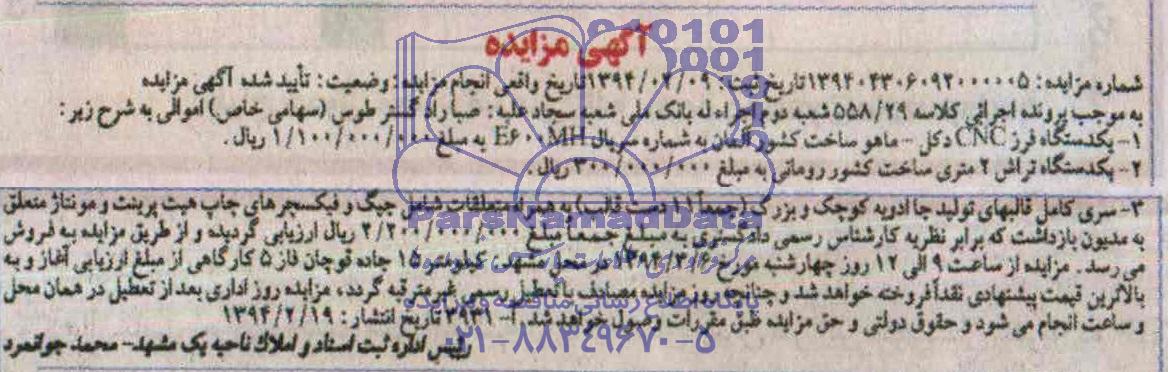 آگهی مزایده
شماره مزایده: ۱۳۹۴۰۴۳۰۶۰۹۲۰۰۰۰۰۵ تاریخ ثبت: ۱۳۹۴/۰۲/۰۹ تاریخ واقعی انجام مزایده: وضعیت: تأیید شده آگهی مزایده
به موجب پرونده اجرائی کلاسه ۵۵۸/۲۹ شعبه دوم اجراء له بانک ملی شعبه سجاد علیه: ضیاراد گستر طوس (سهامی خاص) اموالی به شرح زیر:
۱- یکدستگاه فرز CNC دکل - ماهو ساخت کشور آلمان به شماره سریال MH به مبلغ ۱/۱۰۰/۰۰۰/۰۰۰ ریال.
۲- یکدستگاه تراش ۲ متری ساخت کشور رومانی به مبلغ ۳۰۰/۰۰۰/۰۰۰ ریال.
۳- سری کامل قالبهای تولید جا ادویه کوچک و بزرگ (جمعاً ۱۱ دست قالب) به همراه متعلقات شامل جیگ و فیکسچرهای چاپ هیت پرینت و مونتاژ متعلق
به مدیون بازداشت که برابر نظریه کارشناس رسمی دادگستری به مبلغ جمعاً مبلغ ۲/۲۰۰/۰۰۰/۰۰۰ ریال ارزیابی گردیده و از طریق مزایده به فروش
می رسد. مزایده از ساعت ۹ الی ۱۲ روز چهارشنبه مورخ ۱۳۹۴/۳/۶ در محل مشهد، کیلومتر ۱۵ جاده قوچان فاز ۵ کارگاهی از مبلغ ارزیابی آغاز و به
بالاترین قیمت پیشنهادی نقداً فروخته خواهد شد و چنانچه روز مزایده مصادف با تعطیل رسمی غیرمترقبه گردد، مزایده روز اداری بعد از تعطیل در همان محل
و ساعت انجام می شود و حقوق دولتی و حق مزایده طبق مقررات وصول خواهد شد. آ- ۳۹۳۹ تاریخ انتشار: ۱۳۹۴/۲/۱۹
رئیس اداره ثبت اسناد و املاک ناحیه یک مشهد- محمد جوانمرد
ParsNamadData
پایگاه اطلاع رسانی مناقصه و مزایده
۰۲۱-۸۸۳۴۹۶۷۰-۵